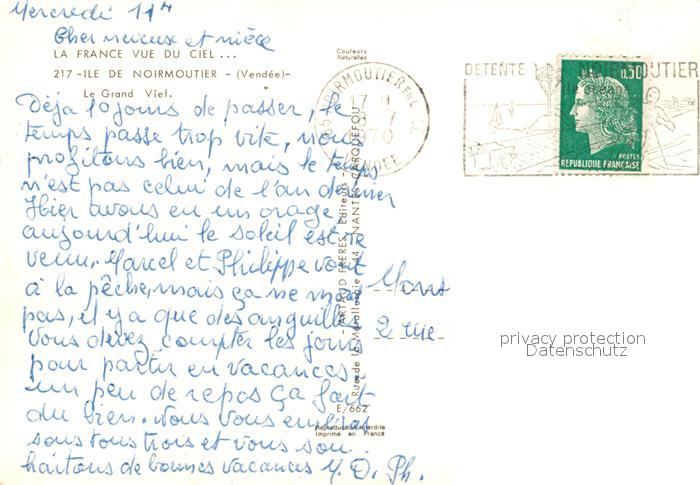 Mercredi 11h
Cher neveux et nièce
LA FRANCE VUE DU CIEL ...
Couleurs
Naturelles
217 - ILE DE NOIRMOUTIER - (Vendée) -
Le Grand Viel.
Déja 10 jours de passer, le
temps passe trop vite, nous
profitons bien, mais le temps
n'est pas celui de l'an dernier
Hier avons eu un orage
aujourd'hui le soleil est re
venu, Marcel et Philippe vont
à la pêche, mais ça ne mord
pas, il y a que des anguilles
Vous devez compter les jours
pour partir en vacances.
un peu de repos ça fait
du bien. Nous vous embras
sons tous trois et vous sou
haitons de bonnes vacances M. D. Ph.
ARTAUD FRERES, Editeurs
Rue de la Métallurgie - 44 - NANTES-CARQUEFOU
E/662
Reproduction interdite
Imprimé en France
NOIRMOUTIER EN L'ILE
17 H
1970
VENDEE
DETENTE
NOIRMOUTIER
0,30
POSTES
REPUBLIQUE FRANÇAISE
Mons
2 rue
privacy protection
Datenschutz